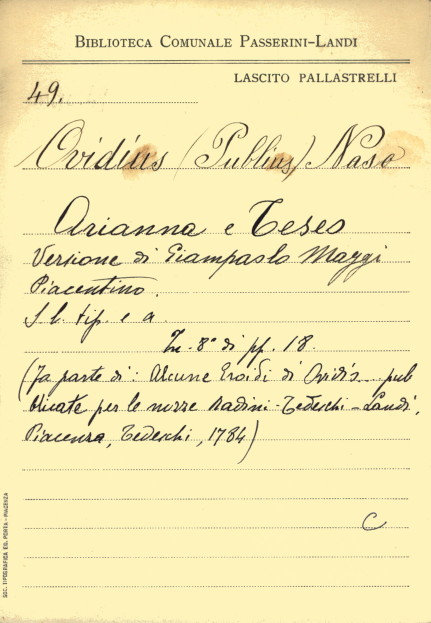 BIBLIOTECA COMUNALE PASSERINI-LANDI
LASCITO PALLASTRELLI
49.
Ovidius (Publius) Naso
Arianna e Teseo
Versione di Giampaolo Maggi
Piacentino.
S. l. tip. e a.
In-8° di pp. 18.
(Fa parte di: Alcune Eroidi di Ovidio... pub
blicate per le nozze Radini-Tedeschi-Landi,
Piacenza, Tedeschi, 1784)
C
SOC. TIPOGRAFICA ED. PORTA - PIACENZA